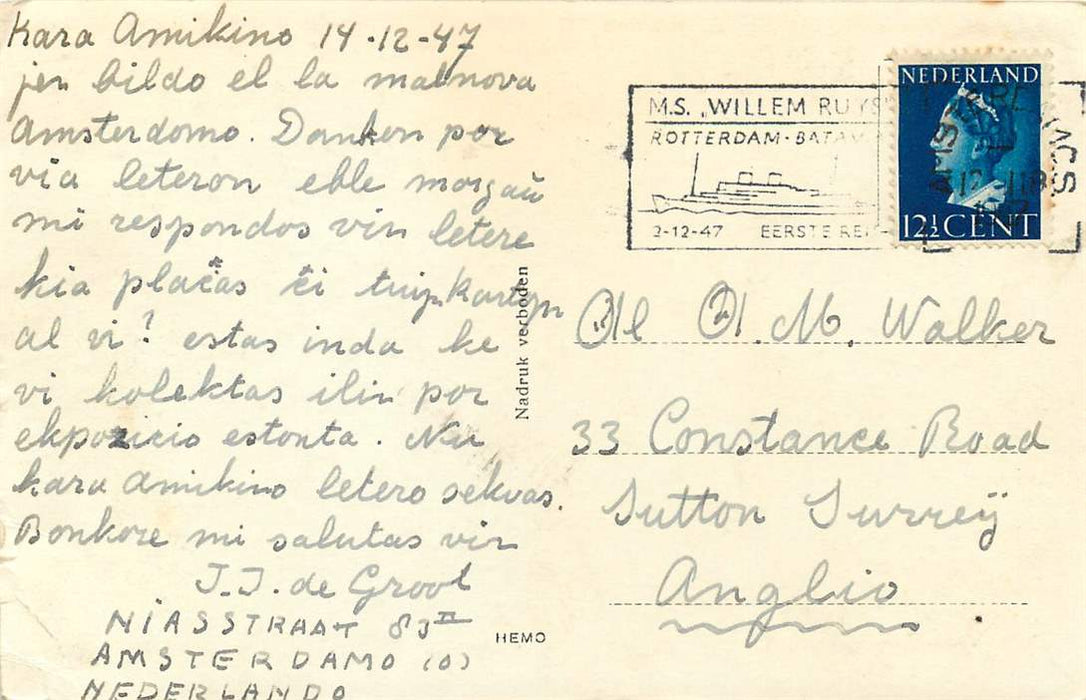 Kara Amikino 14-12-47
jen bildo el la malnova
Amsterdomo. Dankon por
via leteron eble morgaŭ
mi respondos vin letere
kia plaĉas ĉi tiujn kartojn
al vi? estas inda ke
vi kolektas ilin por
ekpozicio estonta. Nu
kara Amikino letero sekvas.
Bonkore mi salutas vin
J.J. de Groot
NIASSTRAAT 83 II
AMSTERDAMO (O)
NEDERLANDO
Nadruk verboden
HEMO
M.S. „WILLEM RUYS
ROTTERDAM-BATAV
2-12-47 EERSTE REI
NEDERLAND
12½ CENT
Al M. Walker
33 Constance Road
Sutton Surrey
Anglio